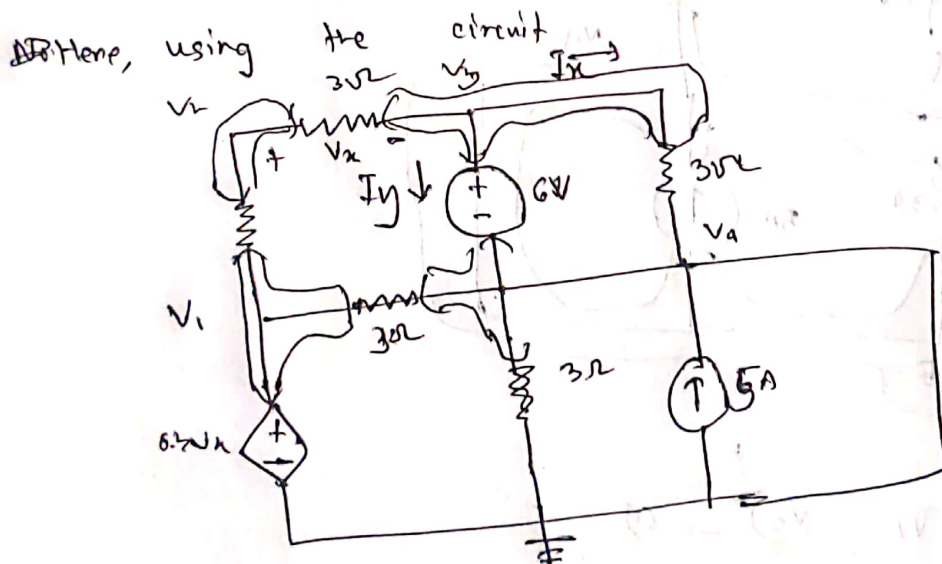 Here, using the circuit
3Ω
V₃
Ix
V₂
+
Vx
-
Iy
+
-
6V
3Ω
V₄
V₁
3Ω
3Ω
5A
+